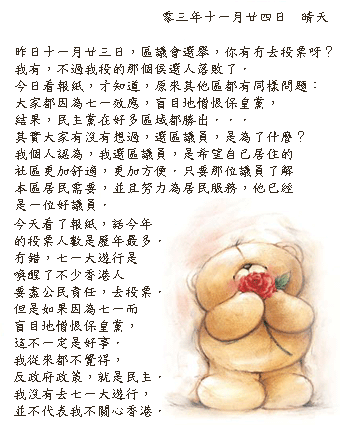 零三年十一月廿四日　晴天
昨日十一月廿三日，區議會選舉，你有冇去投票呀？
我有，不過我投的那個侯選人落敗了．
今日看報紙，才知道，原來其他區都有同樣問題：
大家都因為七一效應，盲目地憎恨保皇黨，
結果，民主黨在好多區域都勝出．．．
其實大家有沒有想過，選區議員，是為了什麼？
我個人認為，我選區議員，是希望自己居住的
社區更加舒適，更加方便．只要那位議員了解
本區居民需要，並且努力為居民服務，他已經
是一位好議員．
今天看了報紙，話今年
的投票人數是歷年最多．
冇錯，七一大遊行是
喚醒了不少香港人
要盡公民責任，去投票．
但是如果因為七一而
盲目地憎恨保皇黨，
這不一定是好事．
我從來都不覺得，
反政府政策，就是民主．
我沒有去七一大遊行，
並不代表我不關心香港．